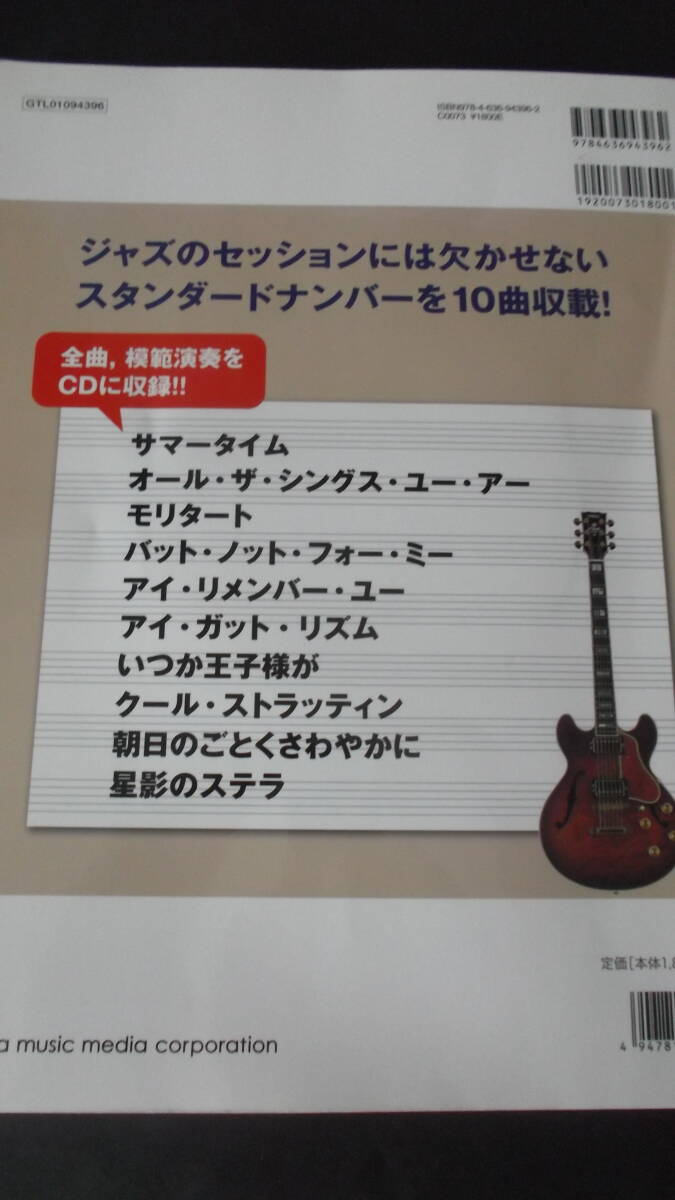 GTL01094396
ISBN978-4-636-94396-2
C0073 ¥1800E
9784636943962
1920073018001
ジャズのセッションには欠かせない
スタンダードナンバーを10曲収載!
全曲, 模範演奏を
CDに収録!!
サマータイム
オール・ザ・シングス・ユー・アー
モリタート
バット・ノット・フォー・ミー
アイ・リメンバー・ユー
アイ・ガット・リズム
いつか王子様が
クール・ストラッティン
朝日のごとくさわやかに
星影のステラ
定価[本体1,8
a music media corporation
4 94781